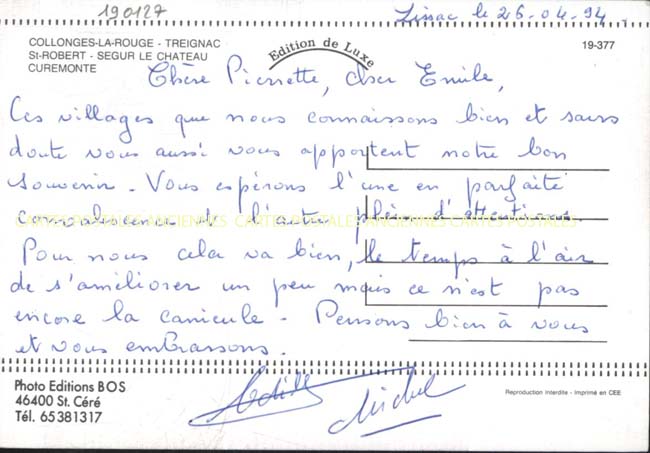 190127
Lissac le 26-04-94.
COLLONGES-LA-ROUGE - TREIGNAC
St-ROBERT - SEGUR LE CHATEAU
CUREMONTE
Edition de Luxe
19-377
Chère Pierrette, cher Emile,
Ces villages que nous connaissons bien et sans
doute vous aussi vous apportent notre bon
souvenir. Vous espérons l'une en parfaite
convalescence et l'autre plein d'attentions
CARTES POSTALES ANCIENNES CARTES POSTALES ANCIENNES CARTES POSTALES
Pour nous cela va bien, le temps à l'air
de s'améliorer un peu mais ce n'est pas
encore la canicule. Pensons bien à vous
et vous embrassons.
Odile
Michel
Photo Editions BOS
46400 St. Céré
Tél. 65381317
Reproduction Interdite - Imprimé en CEE